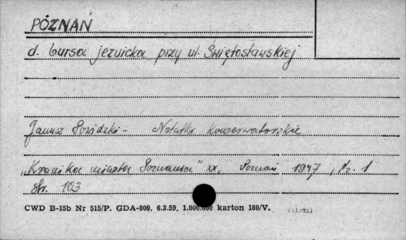 POZNAŃ
d. bursa jezuicka przy ul. Świętosławskiej
Janusz - Notatki konserwatorskie
"Kronika miasta Poznania" xx, Poznań 1947, Nr. 1
Str. 103
CWD B-15b Nr 515/P. GDA-800, 6.3.59, 1.000.000 karton 180/V.